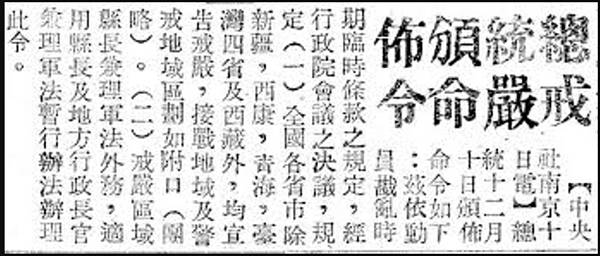 總統頒佈
戒嚴命令
【中央
社南京十
日電】總
統十二月
十日頒佈
命令如下
：茲依動
員戡亂時
期臨時條款之規定，經
行政院會議之決議，規
定（一）全國各省市除
新疆，西康，青海，臺
灣四省及西藏外，均宣
告戒嚴，接戰地域及警
戒地域區劃如附口（圖
略）。（二）戒嚴區域
縣長兼理軍法外務，適
用縣長及地方行政長官
兼理軍法暫行辦法辦理
此令。